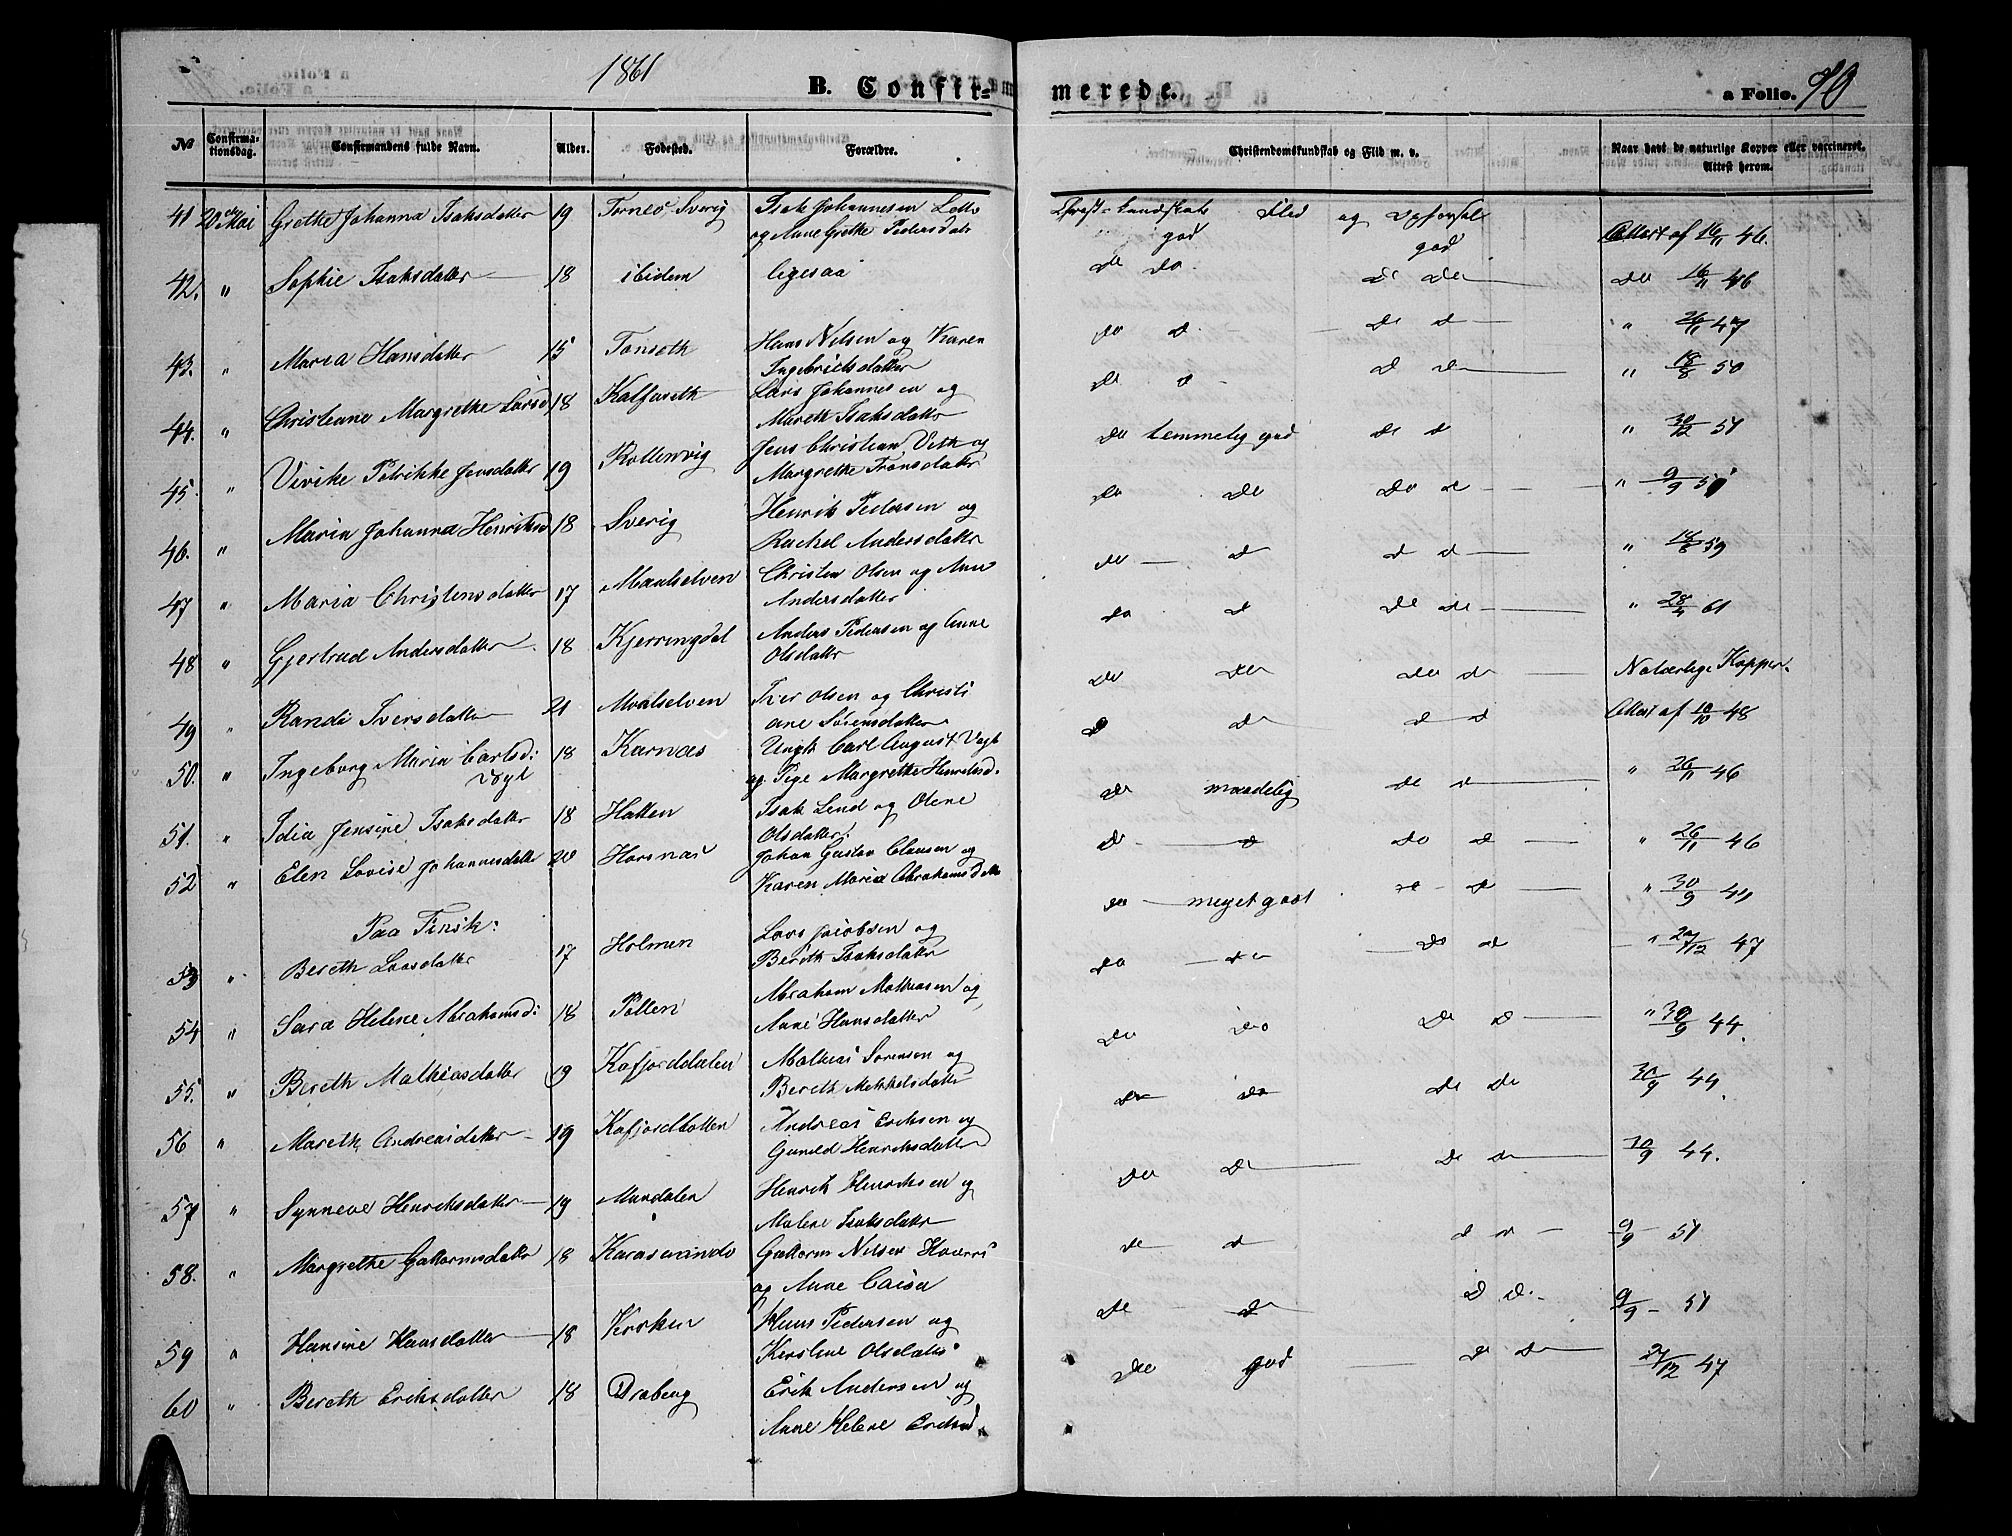 1861
B. Confir-
merede.
a Folio. 70
№
Confirma-
tionsdag.
Confirmandens fulde Navn.
Alder.
Fødested.
Forældre.
Christendomskundskab og Flid m. v.
Naar havt de naturlige Kopper eller vaccineret.
Attest herom.
41 20de Mai Grethe Johanna Isaksdatter 19 Torneo Sverig Isak Johannesen Lotto
og Ane Grethe Pedersdatr
Christ. kundskab god Flid og Opførsel god Attest af 16/11 46.
42. " Sophie Isaksdatter 18 ibidem ligesaa do do. do do do 16/11 46
43. " Maria Hansdatter 15 Tonseth Hans Nilsen og Karen
Ingebrigtsdatter
do d. do d " 26/11 47
44. " Christiane Margrethe Larsd 18 Kalfaseth Lars Johannesen og
Mareth Isaksdatter
do d d do " 18/8 50
45. " Vivike Petrikke Jensdatter 19 Rollenvig Jens Christian Veth og
Margrethe Fransdatter
do temmelig god do d " 30/12 51
46. " Maria Johanna Henriksd 18 Sverig Henrik Pedersen og
Rachel Andersdatter
do do do d " 9/9 51
47 " Maria Christensdatter 17 Maalselven Christen Olsen og Ane
Andersdatter
do d d d " 18/8 59
48 " Gjertrud Andersdatter 18 Kjerringdal Anders Pedersen og Anne
Olsdatter
do d do do " 28/4 61
49 " Randi Iversdatter 21 Maalselven Iver Olsen og Christi
ane Sørensdatter
do do do d Naturlige Kopper.
50. " Ingeborg Maria Carlsd: Vogt 18 Karnæs Ungk. Carl August Vogt
og Pige Margrethe Henriksd.
d d d d Attest af 10/10 48
51. " Idia Jensine Isaksdatter 18 Hatten Isak Lind og Olene
Olsdatter
do maadelig do d " 26/11 46
52 " Elen Lovise Johannesdatter 20 Horsnæs Johan Gustav Clausen og
Karen Maria Abrahamsdatter
d d do d " 26/11 46
Paa Finsk:
53 " Bereth Larsdatter 17 Holmen Lars Jacobsen og
Bereth Isaksdatter
do meget godt d d " 30/9 44
54 " Sara Helene Abrahamsd: 18 Pollen Abraham Mathiasen og
Ane Hansdatter
do do do d " 27/12 47
55. " Bereth Mathiasdatter 19 Kafjorddalen Mathias Sørensen og
Bereth Mikkelsdatter
do do do d " 30/9 44.
56 " Mareth Andreasdatter 19 Kafjordbotten Andreas Eriksen og
Gunild Henriksdatter
do do do do 30/9 44
57 " Synneve Henriksdatter 19 Mandalen Henrik Henriksen og
Malene Isaksdatter
do d do d 30/9 44.
58. " Margrethe Guttormsdatter 18 Karasuando Guttorm Nilsen Hoverri
og Anne Caisa
do d d d 9/9 51
59 " Hansine Hansdatter 18 Kroken Hans Pedersen og
Kirstine Olsdatter
do d d d. 9/9 51
60 " Bereth Eriksdatter 18 Draberg Erik Andersen og
Anne Helene Eriksd.
do god d d 27/12 47